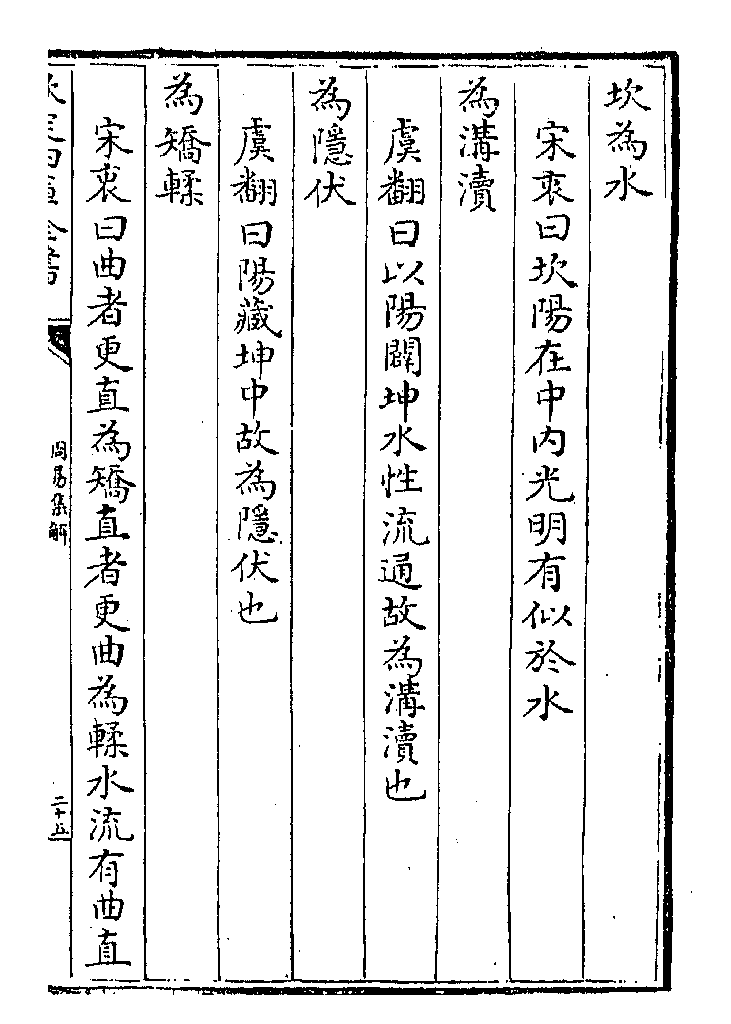 坎為水
宋衷曰坎陽在中內光明有似於水
為溝瀆
虞翻曰以陽闢坤水性流通故為溝瀆也
為隱伏
虞翻曰陽藏坤中故為隱伏也
為矯輮
宋衷曰曲者更直為矯直者更曲為輮水流有曲直
欽定四庫全書
周易集解
二十五